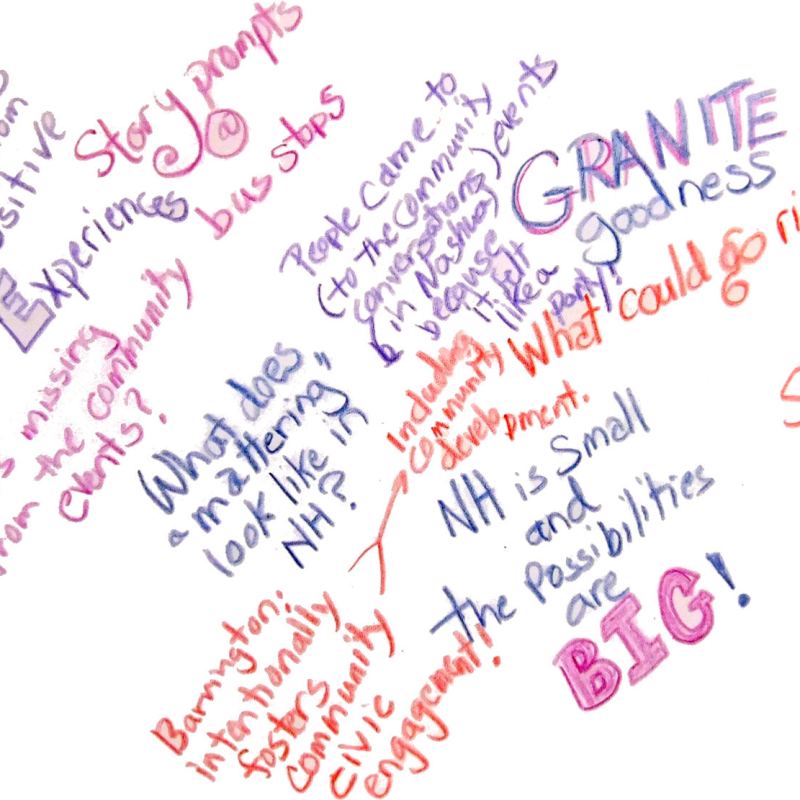 Story prompts
@
bus stops
ositive
Experiences
People came to
(to the community
conversations) events
in Nashua
because
it felt
like a
party!
GRANITE
goodness
What could go
missing
from the community
events?
"What does
"mattering"
look like in
NH?
Including
community
development.
NH is Small
and
the Possibilities
are
BIG!
Barrington:
intentionally
fosters
community
civic
engagement!